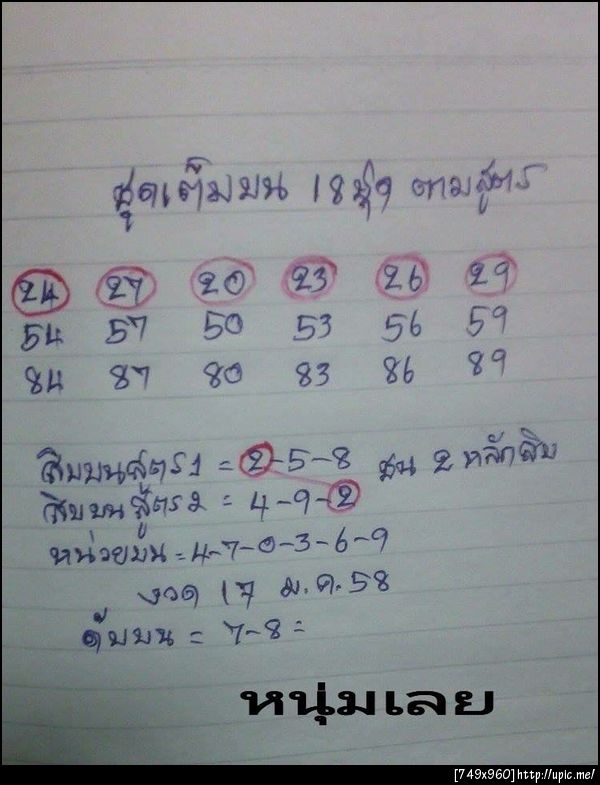 ชุดเต็มบน 18 ชุด ตามสูตร
24 27 20 23 26 29
54 57 50 53 56 59
84 87 80 83 86 89
สิบบนสูตร1 = 2-5-8 ชน 2 หลักสิบ
สิบบนสูตร2 = 4-9-2
หน่วยบน = 4-7-0-3-6-9
งวด 17 ม.ค. 58
ดับบน = 7-8 =
หนุ่มเลย
[749x960] http://upic.me/